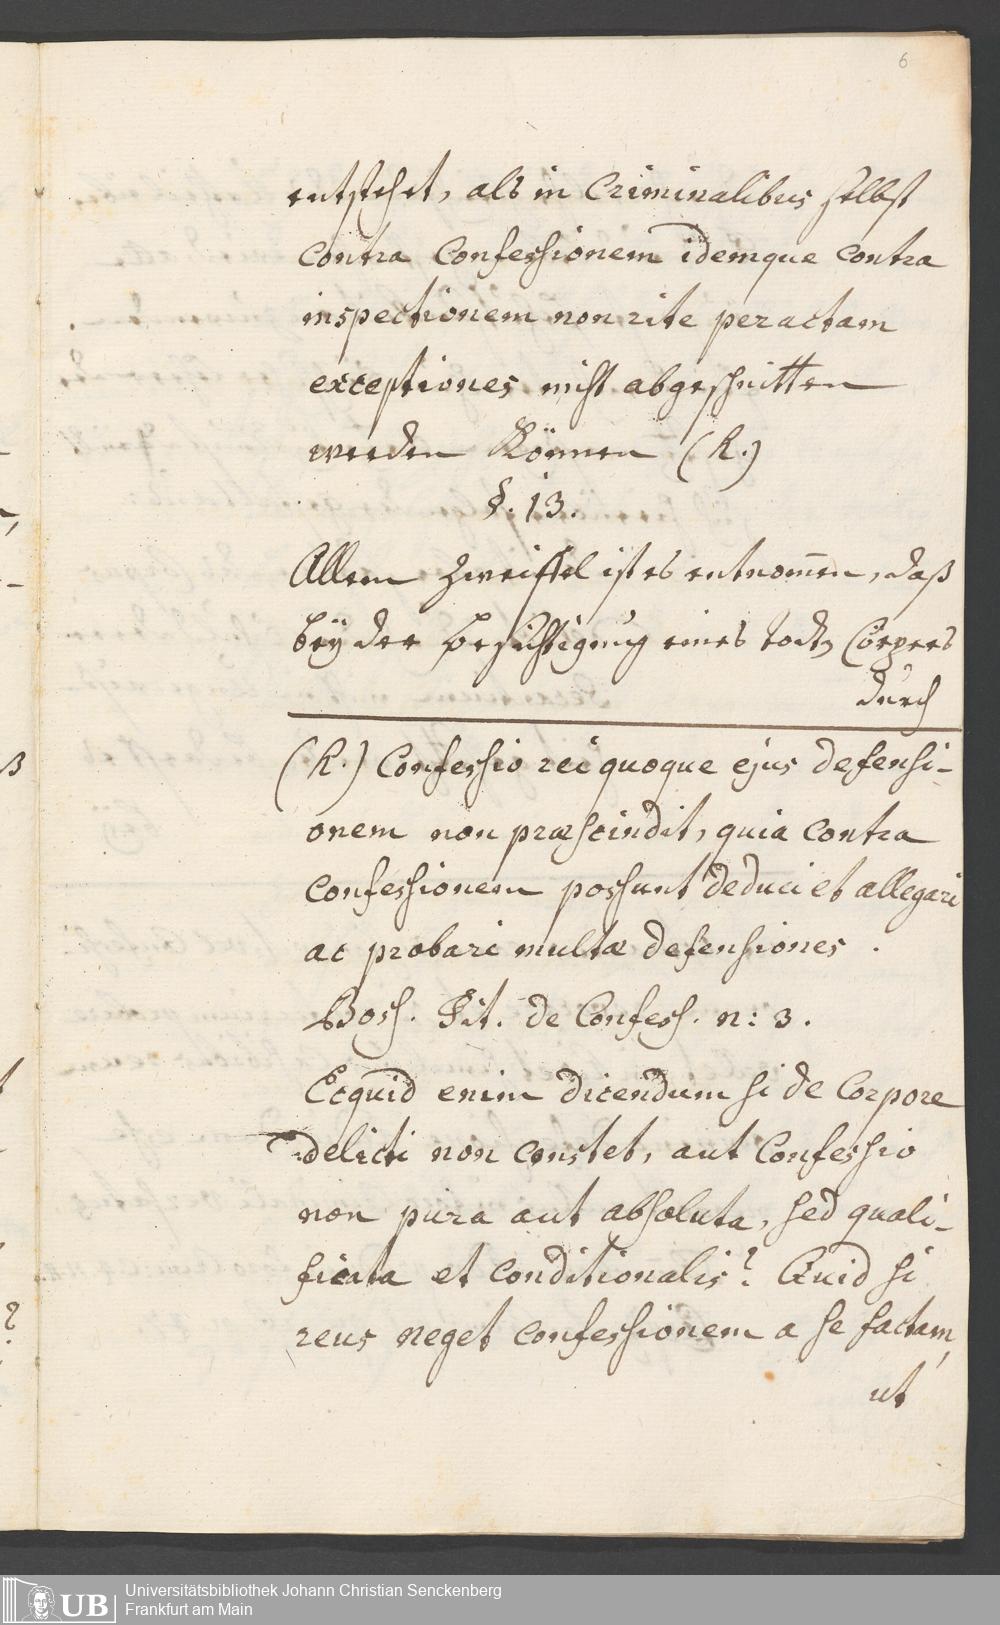 6
entstehet, als in Criminalibus selbst
contra Confessionem idemque contra
inspectionem non rite peractam
exceptiones nicht abgeschnitten
werden Können (R.)
§. 13.
Allem Zweiffel ist es entnom̅en, daß
beÿ der besichtigung eines todtn Cörpers
durch
(R.) Confessio rei quoque ejus defensi-
onem non præscindit, quia contra
confessionem possunt deduci et allegari
ac probari multæ defensiones.
Boss. Tit. de Confess. n: 3.
Ecquid enim dicendum si de Corpore
delicti non constet, aut Confessio
non pura aut absoluta, sed quali-
ficata et conditionalis? Quid si
reus neget confessionem a se factam,
ut
UB
Universitätsbibliothek Johann Christian Senckenberg
Frankfurt am Main